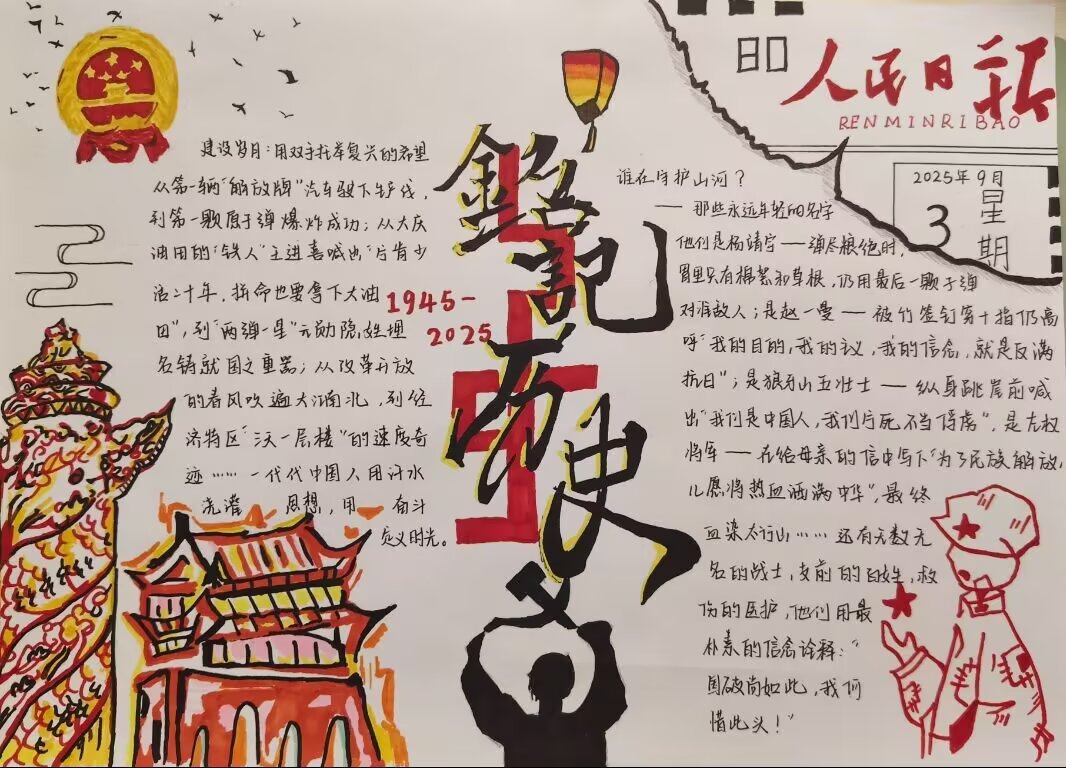 人民日报
RENMINRIBAO
2025年9月
3
星
期
銘記历史
1945-
2025
建设岁月：用双手托举复兴的希望
从第一辆“解放牌”汽车驶下生产线，
到第一颗原子弹爆炸成功；从大庆
油田的“铁人”王进喜喊出“宁肯少
活二十年，拼命也要拿下大油
田”，到“两弹一星”元勋隐姓埋
名铸就国之重器；从改革开放
的春风吹遍大江南北，到经
济特区“三天一层楼”的速度奇
迹……一代代中国人用汗水
浇灌 思想，用 奋斗
定义时光。
谁在守护山河？
—— 那些永远年轻的名字
他们是杨靖宇——弹尽粮绝时，
胃里只有棉絮和草根，仍用最后一颗子弹
对准敌人；是赵一曼——被竹签钉第十指仍高
呼“我的目的，我的主义，我的信念，就是反满
抗日”；是狼牙山五壮士——纵身跳崖前喊
出“我们是中国人，我们宁死不当俘虏”，是左权
将军——在给母亲的信中写下“为了民族解放，
儿愿将热血洒满中华”，最终
血染太行山……还有无数无
名的战士，支前的百姓，救
伤的医护，他们用最
朴素的信念诠释：“
国破尚如此，我何
惜此头！”